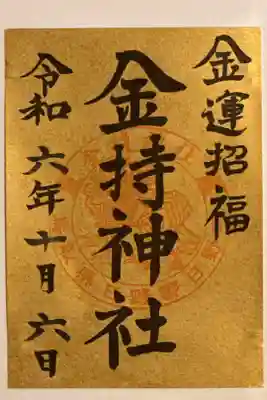 金運招福
金持神社
令和六年十月六日